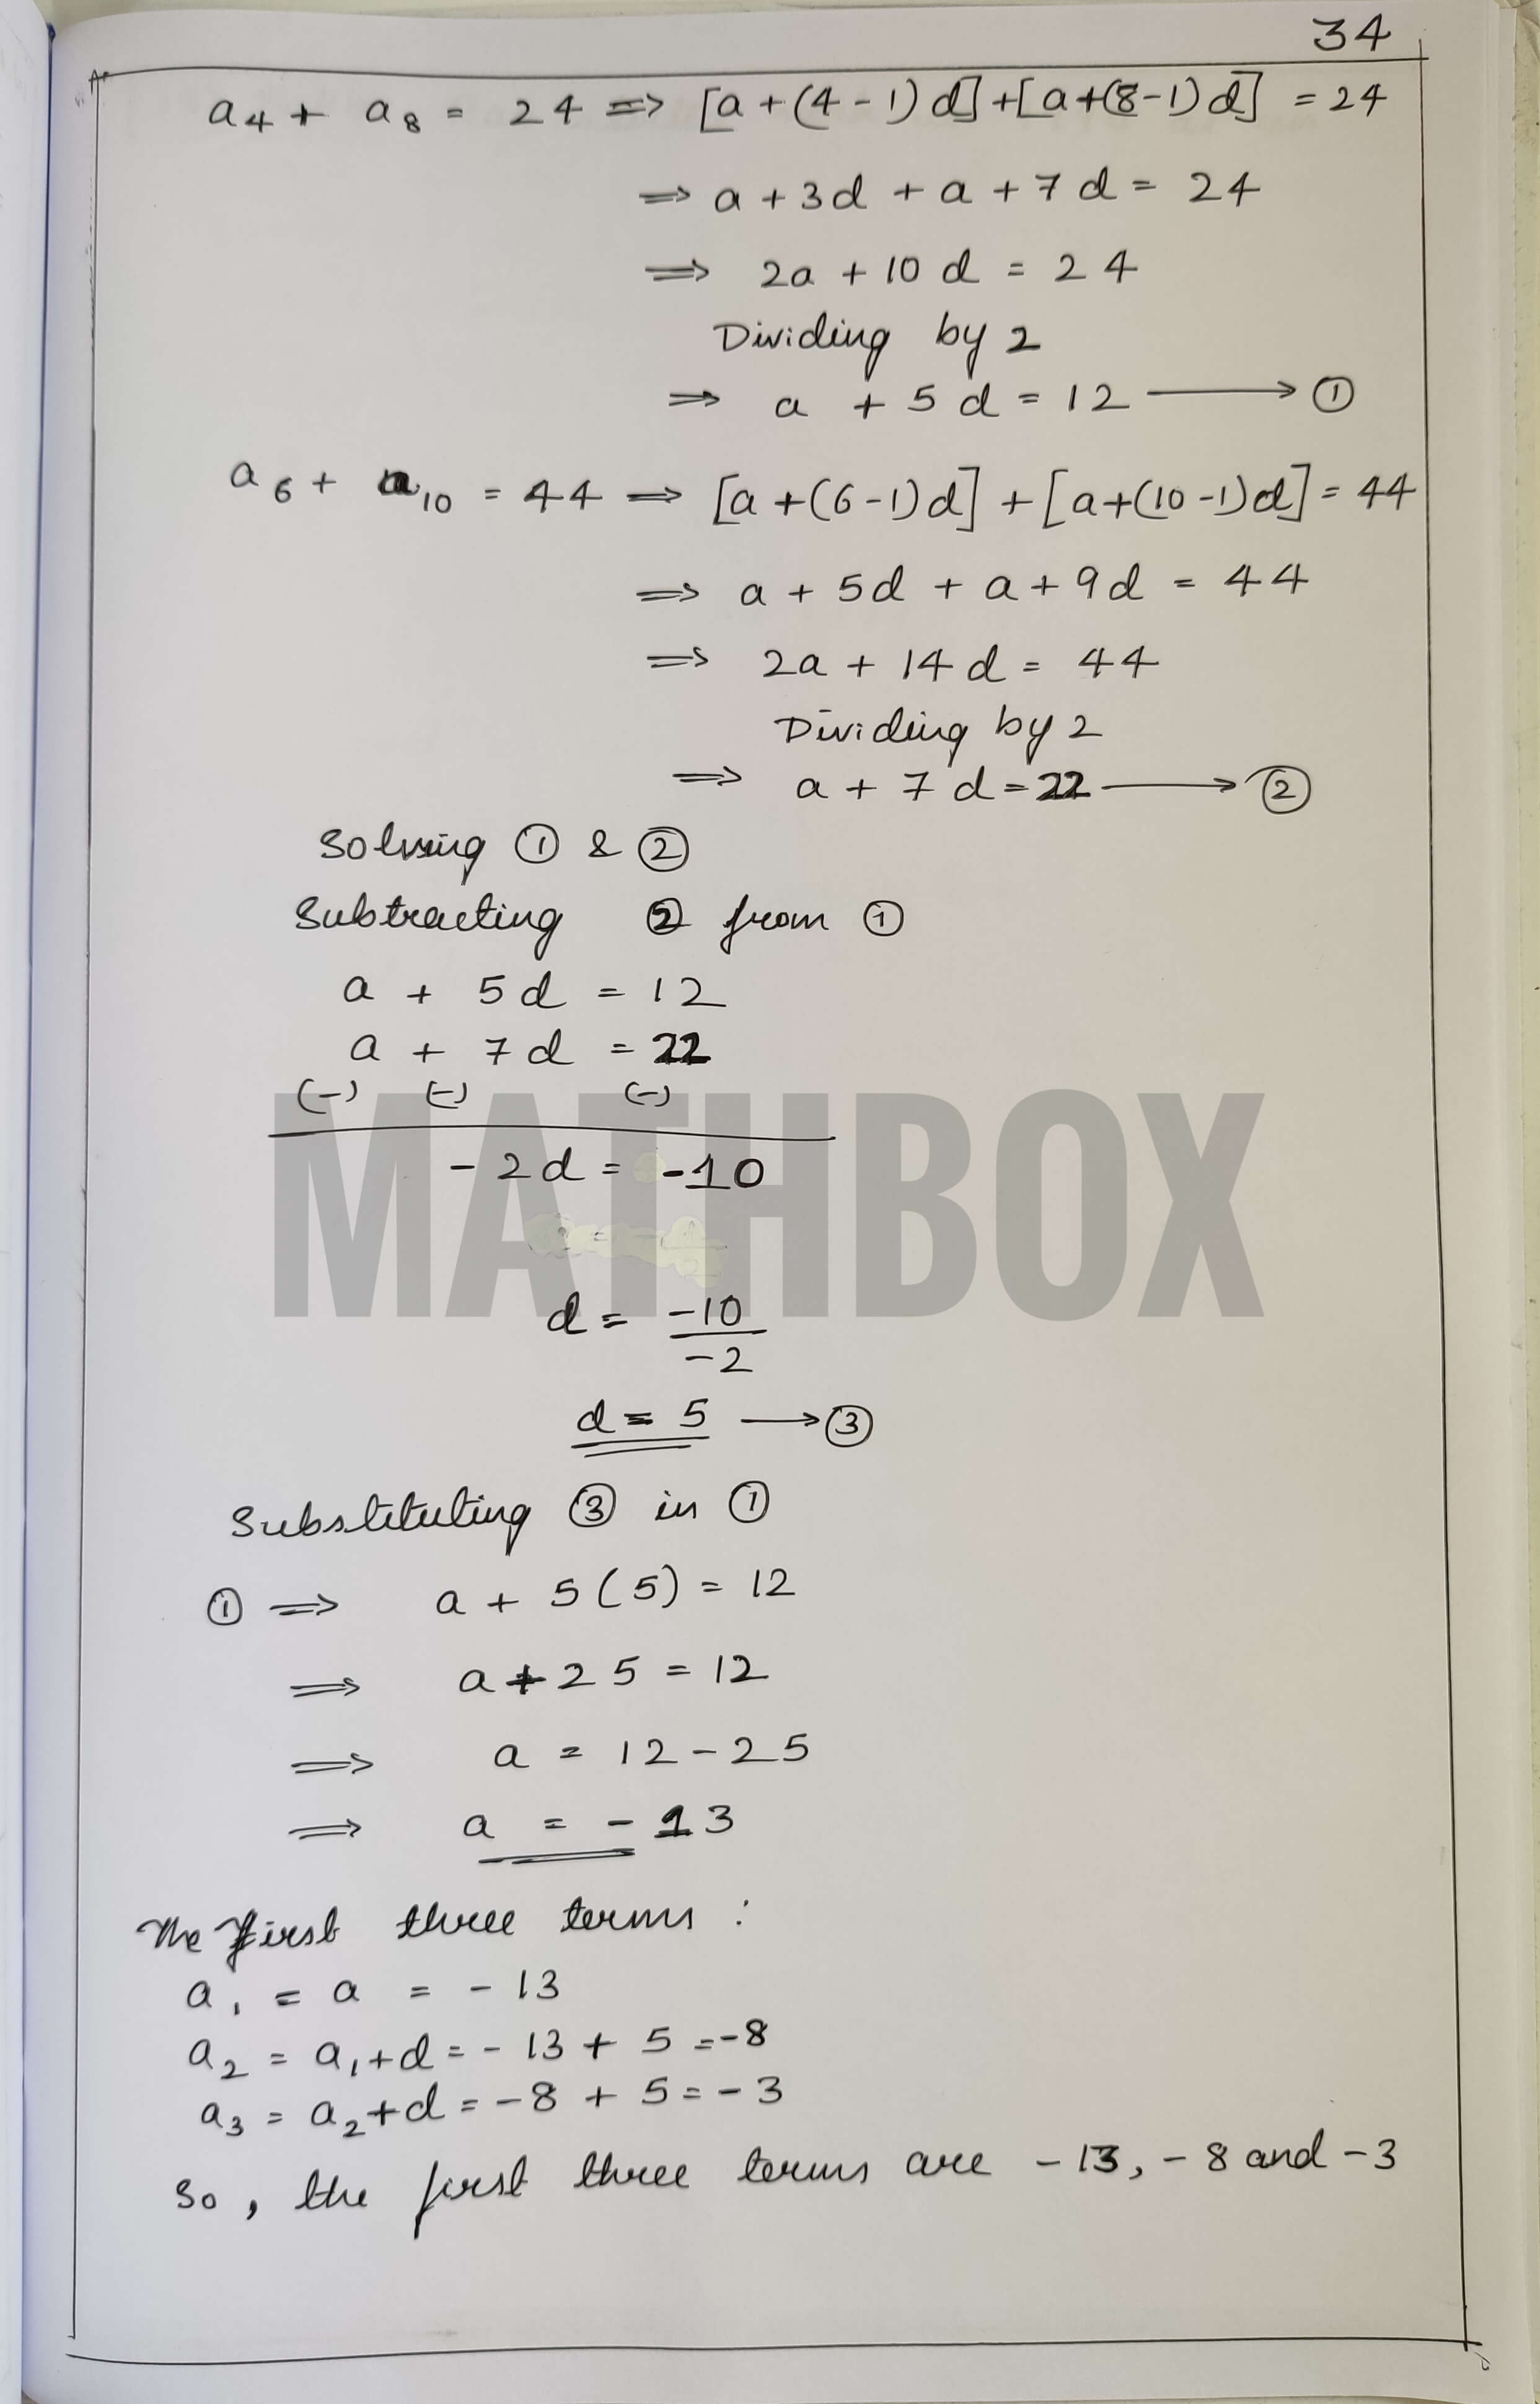 34
a₄ + a₈ = 24 => [a+(4-1)d]+[a+(8-1)d] = 24
=> a+3d + a + 7d = 24
=> 2a + 10d = 24
Dividing by 2
=> a + 5d = 12 ⟶ ①
a₆ + a₁₀ = 44 => [a+(6-1)d] + [a+(10-1)d] = 44
=> a + 5d + a + 9d = 44
=> 2a + 14d = 44
Dividing by 2
=> a + 7d = 22 ⟶ ②
Solving ① & ②
Subtracting ② from ①
a + 5d = 12
a + 7d = 22
(-) (-) (-)
-2d = -10
MATHBOX
d = -10/-2
d = 5 ⟶ ③
Substituting ③ in ①
① => a + 5(5) = 12
=> a + 25 = 12
=> a = 12-25
=> a = -13
The first three terms :
a₁ = a = -13
a₂ = a₁+d = -13 + 5 = -8
a₃ = a₂+d = -8 + 5 = -3
So, the first three terms are -13, -8 and -3